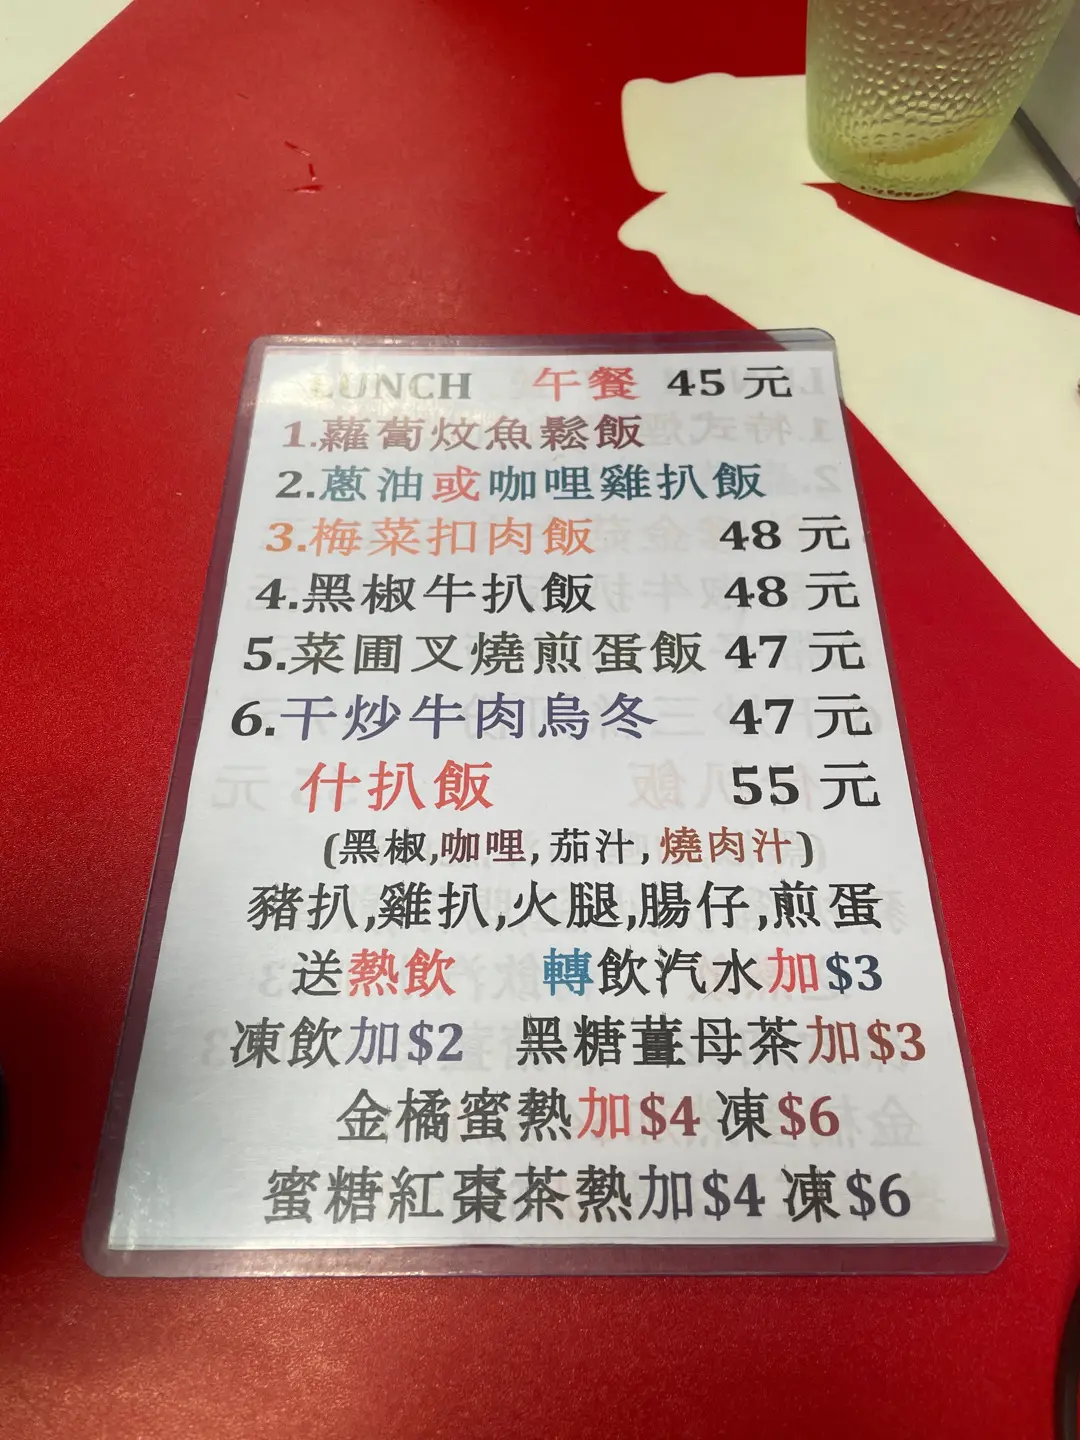 LUNCH 午餐 45元
1.蘿蔔炆魚鬆飯
2.蔥油或咖哩雞扒飯
3.梅菜扣肉飯 48元
4.黑椒牛扒飯 48元
5.菜圃叉燒煎蛋飯 47元
6.干炒牛肉烏冬 47元
什扒飯 55元
(黑椒,咖哩,茄汁,燒肉汁)
豬扒,雞扒,火腿,腸仔,煎蛋
送熱飲 轉飲汽水加$3
凍飲加$2 黑糖薑母茶加$3
金橘蜜熱加$4 凍$6
蜜糖紅棗茶熱加$4 凍$6